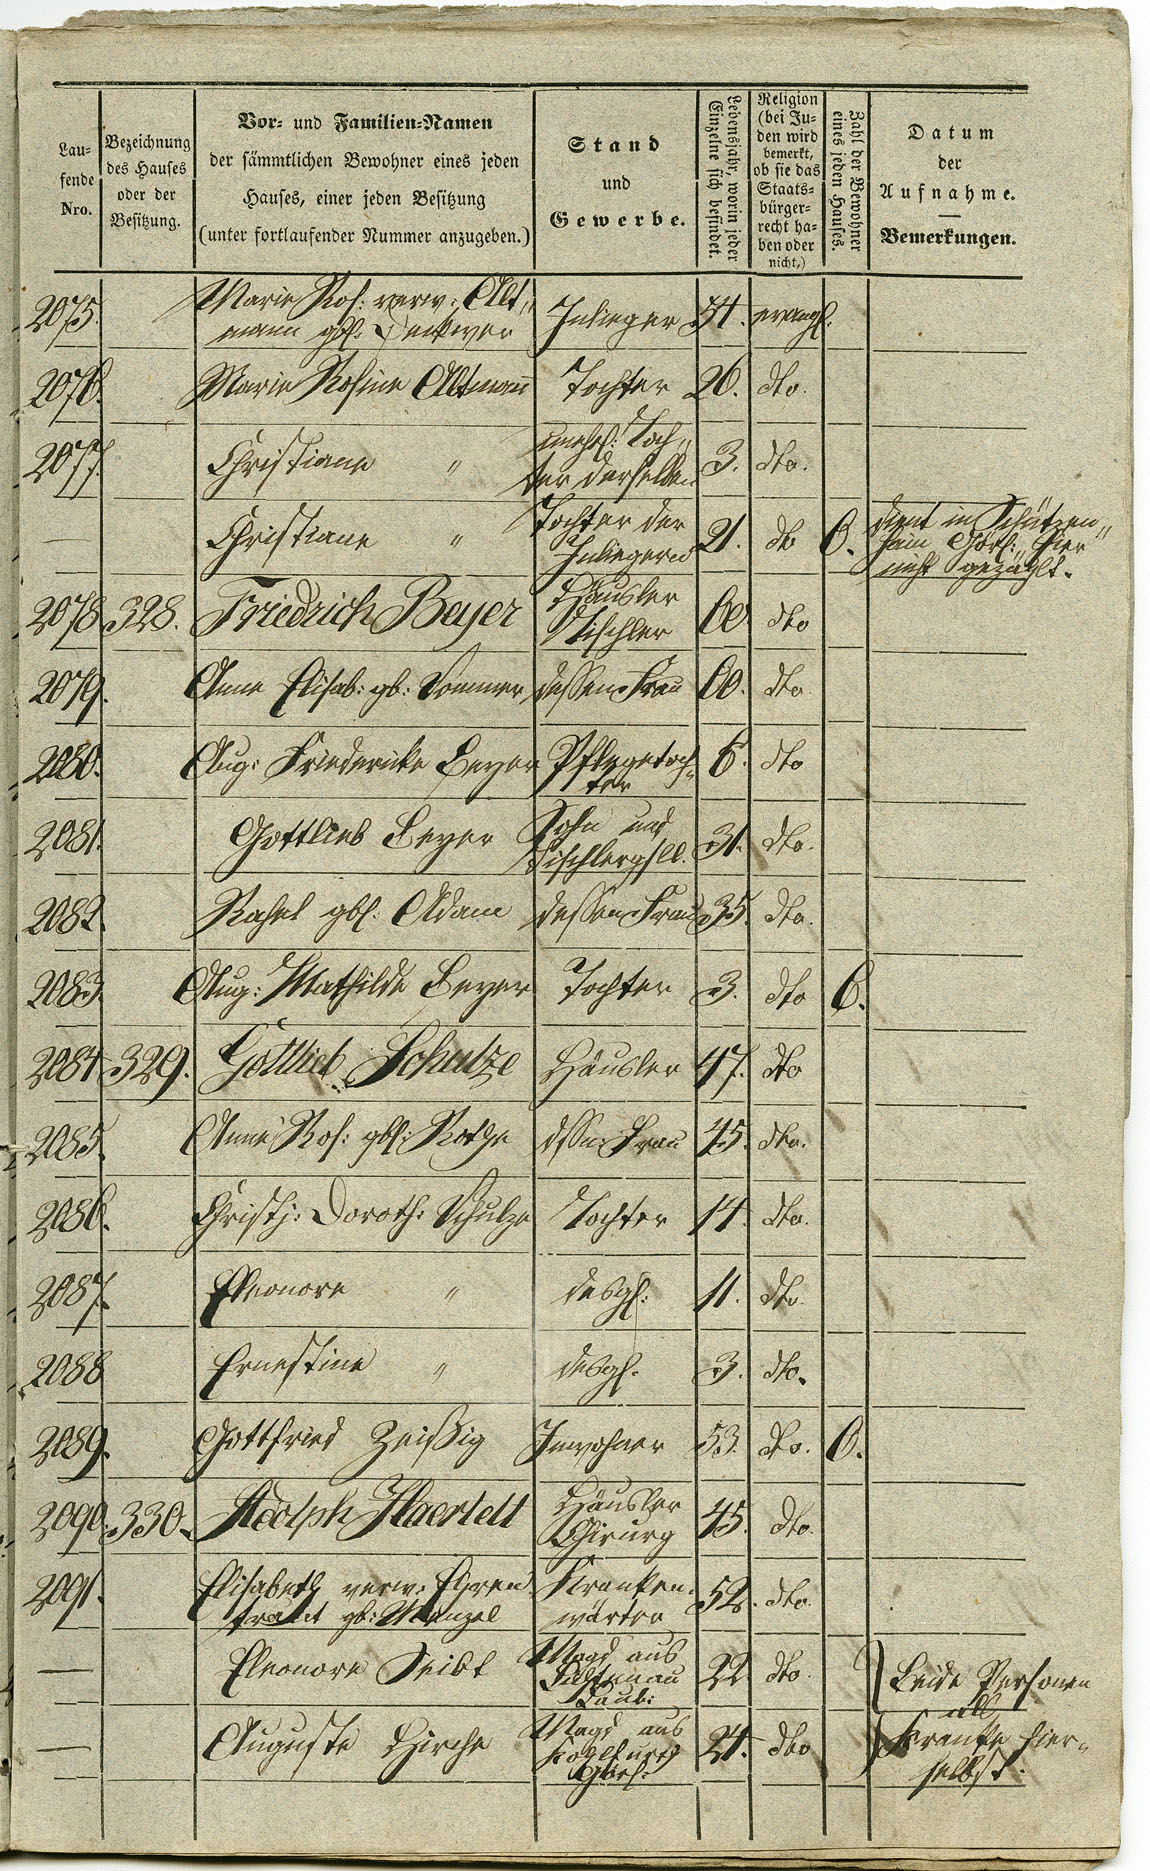 Lau-
fende
Nro.
Bezeichnung
des Hauses
oder der
Besitzung.
Vor- und Familien-Namen
der sämmtlichen Bewohner eines jeden
Hauses, einer jeden Besitzung
(unter fortlaufender Nummer anzugeben.)
Stand
und
Gewerbe.
Lebensjahr, worin jeder
Einzelne sich befindet.
Religion
(bei Ju-
den wird
bemerkt,
ob sie das
Staats-
bürger-
recht ha-
ben oder
nicht.)
Zahl der Bewohner
eines jeden Hauses.
Datum
der
Aufnahme.
Bemerkungen.
2075. Marie Ros: verw: Alt-
mann gbl: Inlieger 54. evangl.
2076. Marie Rosine Altmann Tochter 26. dto.
2077. Christiane " unehl: Toch-
ter derselben 3. dto.
— Christiane " Tochter der
Inliegerin 21. dto 6. dient in Schützen-
hain Görl: hier
nicht gezählt.
2078. 328. Friedrich Beyer Häusler
Tischler 60 dto
2079. Anne Elisab: gb: Sommer dessen Frau 60. dto.
2080. Aug: Friedericke Beyer Pflegetoch-
ter 6. dto
2081. Gottlieb Beyer Sohn und
Tischlergsll. 31. dto.
2082. Rahel gbl. Adam dessen Frau 35. dto.
2083. Aug: Mathilde Beyer Tochter 3. dto 6.
2084 329. Gottlieb Schulze Häusler 47. dto
2085. Anne Ros: gbl: Rothe dssen Frau 45. dto.
2086. Christ: Doroth: Schulze Tochter 14. dto.
2087. Eleonore " desgl: 11. dto.
2088 Ernestine " desgl. 3. dto.
2089. Gottfried Zeißig Inwohner 53. dto. 6.
2090. 330. Adolph Haertelt Häusler
Chirurg 45. dto.
2091. Elisabeth verw: Ehren-
traut gb: Menzel Kranken-
wärter 52. dto.
— Eleonore Seibt Magd aus
Laub: 22 dto. Beide Personen
als
— Auguste Hirche Magd aus
Görl: 24. dto Kranke hier-
selbst.